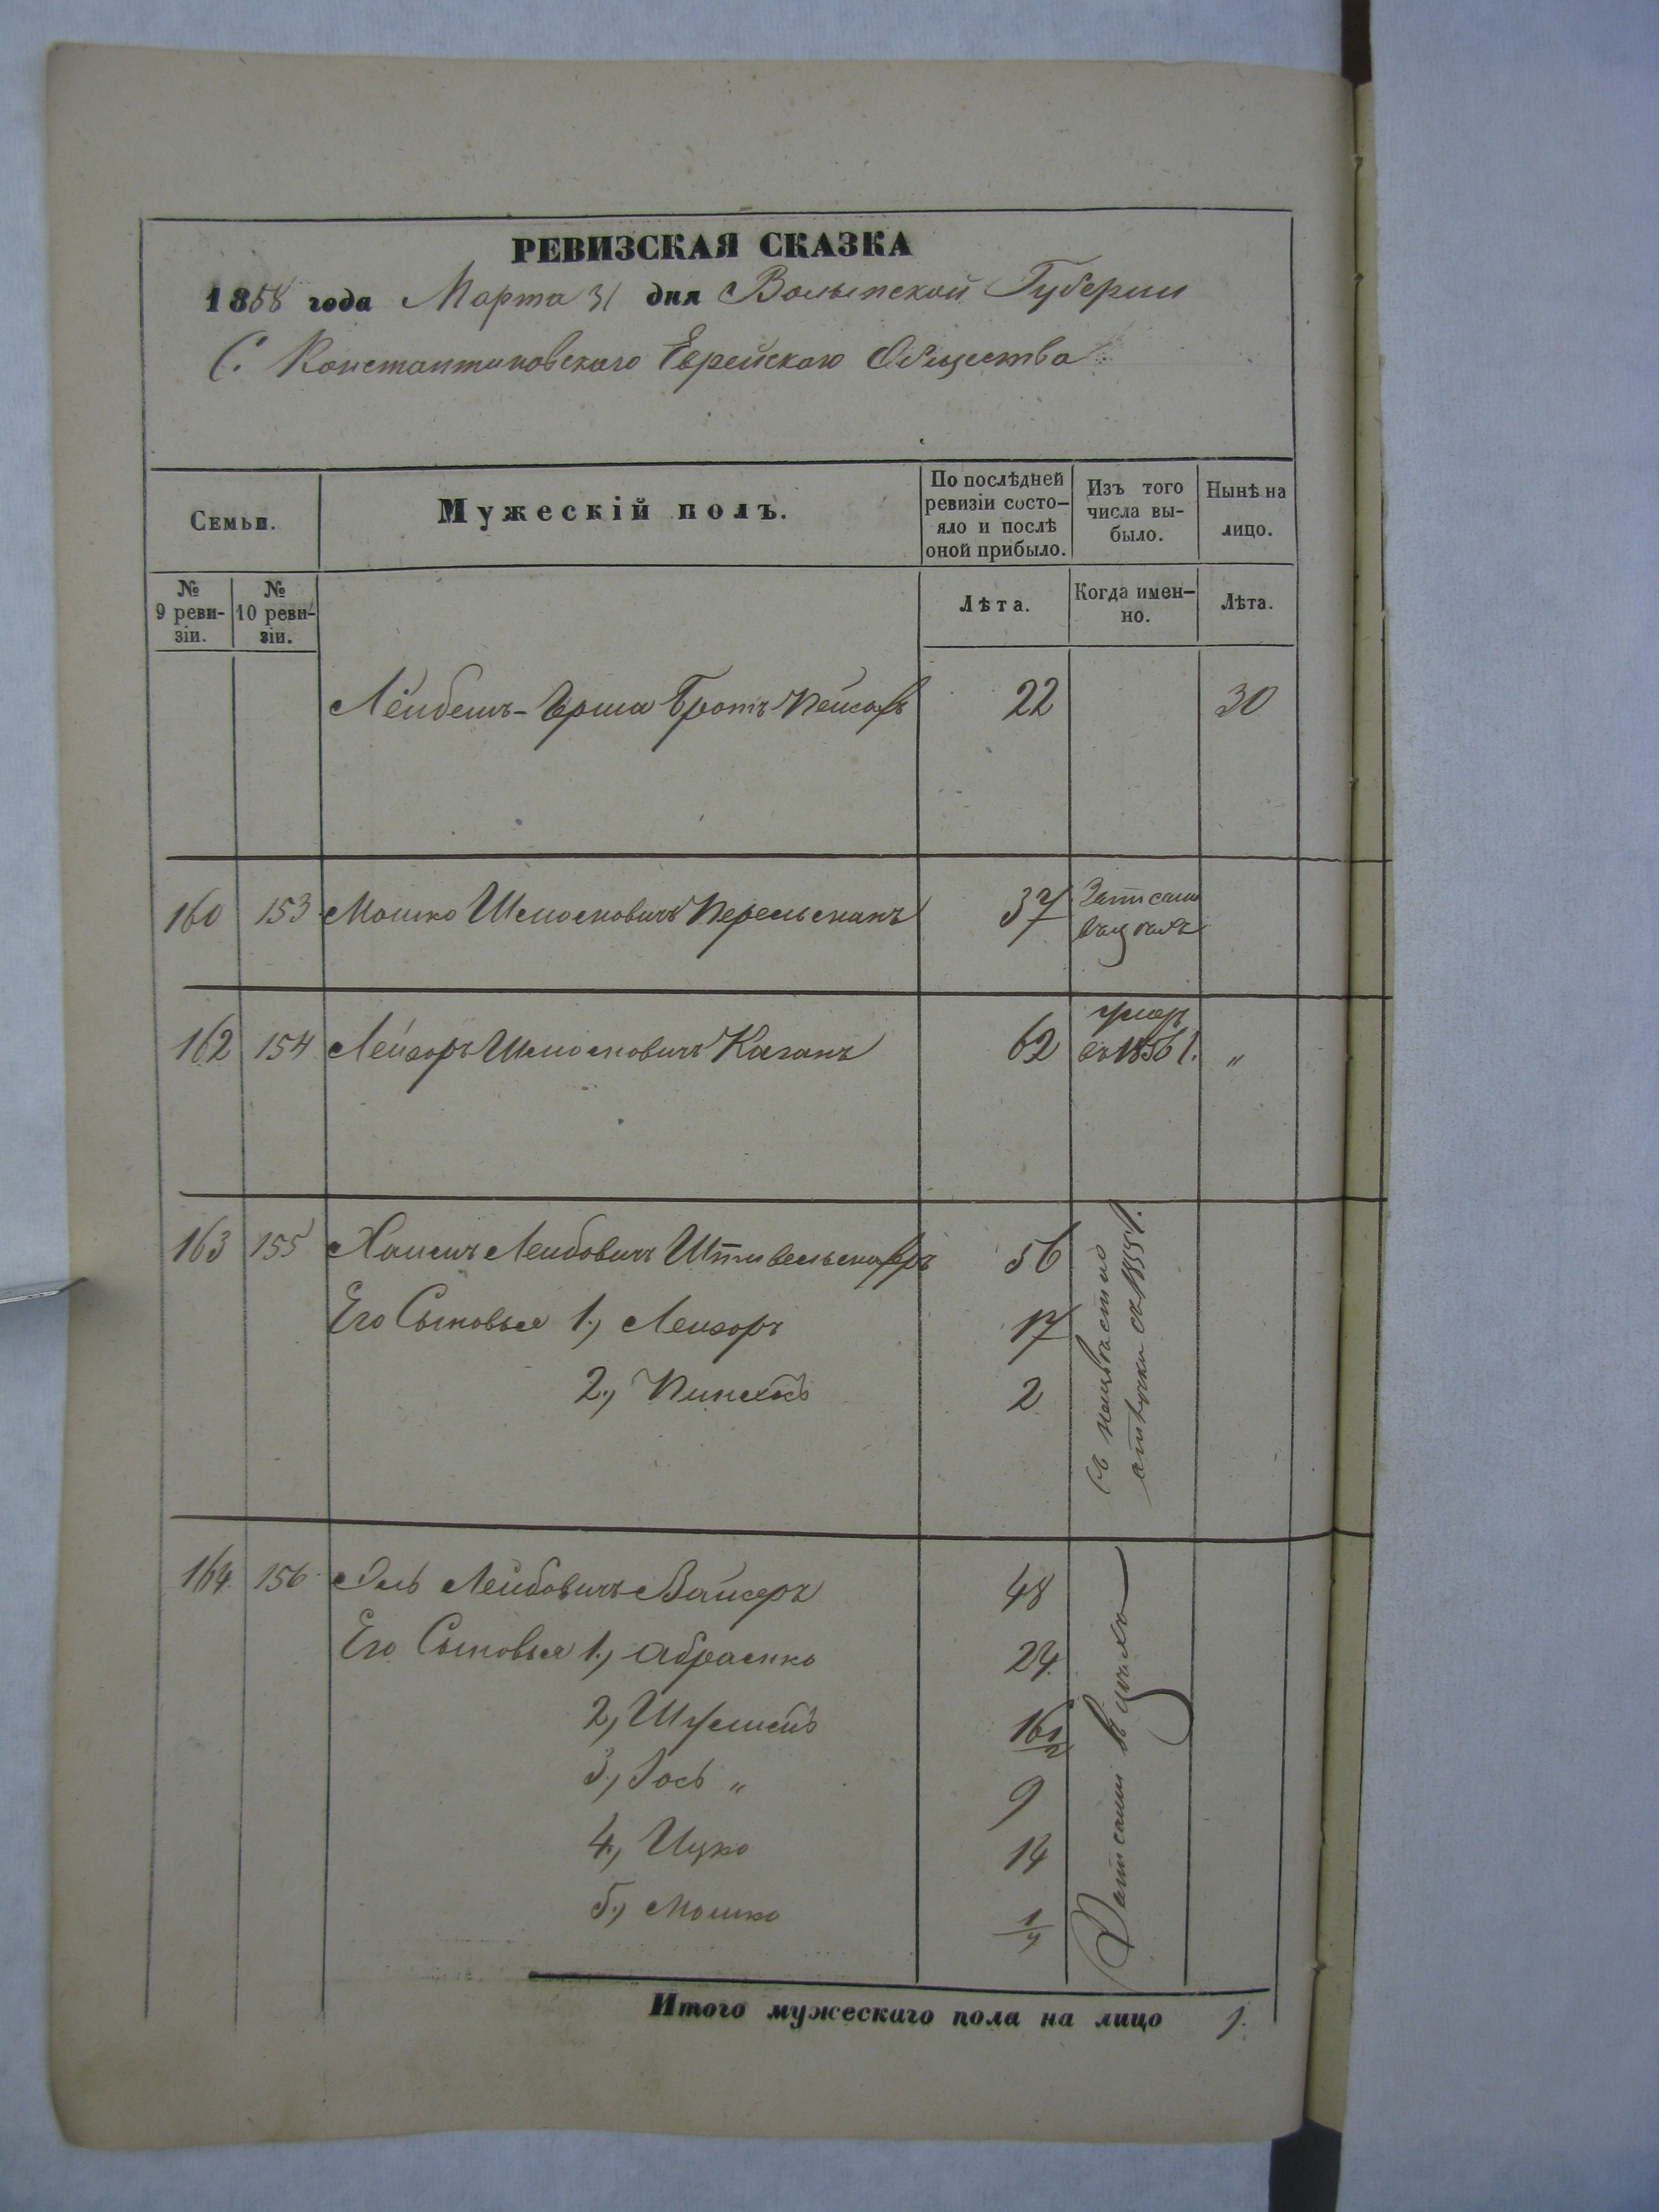 РЕВИЗСКАЯ СКАЗКА
1858 года Марта 31 дня Волынской Губернии
С. Константиновского Еврейскаго Общества
Семьи.
Мужескій полъ.
По послѣдней ревизіи состо-
яло и послѣ
оной прибыло.
Изъ того
числа вы-
было.
Нынѣ на
лицо.
№
9 реви-
зіи.
№
10 реви-
зіи.
Лѣта.
Когда имен-
но.
Лѣта.
Лейбишъ-Герша Братъ Пейсахъ 22 30
160 153 Мошко Шмойловичъ Перельманъ 37 Записанъ
въ цехъ
162 154 Лейзоръ Шмойловичъ Каганъ 62 умеръ
въ 1856 г. „
163 155 Хаимъ Лейбовичъ 56
Его Сыновья 1., Лейзоръ 17
2., Пинхасъ 2
въ неизвѣстно
отлучки съ 185 г.
164 156 Лейбовичъ Вайсеръ 48
Его Сыновья 1., Абрамко 24
2., 16 1/2
3., Іось „ 9
4., Ицко 14
5., Мошко 1/4
Записаны въ цехъ
Итого мужескаго пола на лицо 1.